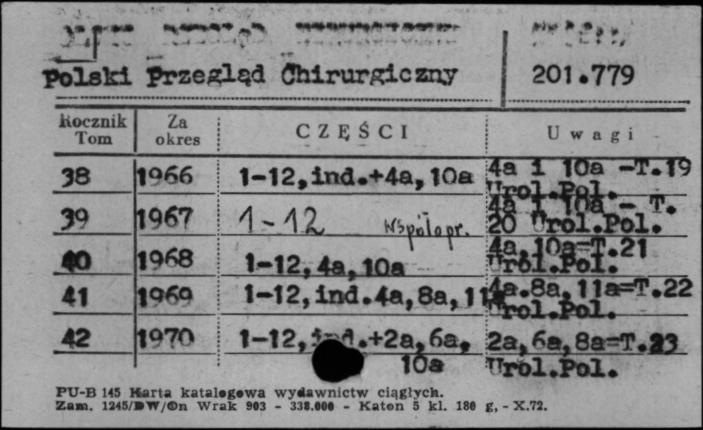 Polski Przegląd Chirurgiczny 201.779
Rocznik Tom Za okres CZĘŚCI Uwagi
38 1966 1-12,ind.+4a,10a 4a i 10a -T.19 Urol.Pol.
39 1967 1-12 Współopr. 4a i 10a - T. 20 Urol.Pol.
40 1968 1-12,4a,10a 4a,10a=T.21 Urol.Pol.
41 1969 1-12,ind.4a,8a,11a 4a.8a,11a=T.22 Urol.Pol.
42 1970 1-12,ind.+2a,6a, 10a 2a,6a,8a=T.23 Urol.Pol.
PU-B 145 Karta katalogowa wydawnictw ciągłych.
Zam. 1245/DW/On Wrak 903 - 338.000 - Katon 5 kl. 180 g, - X.72.